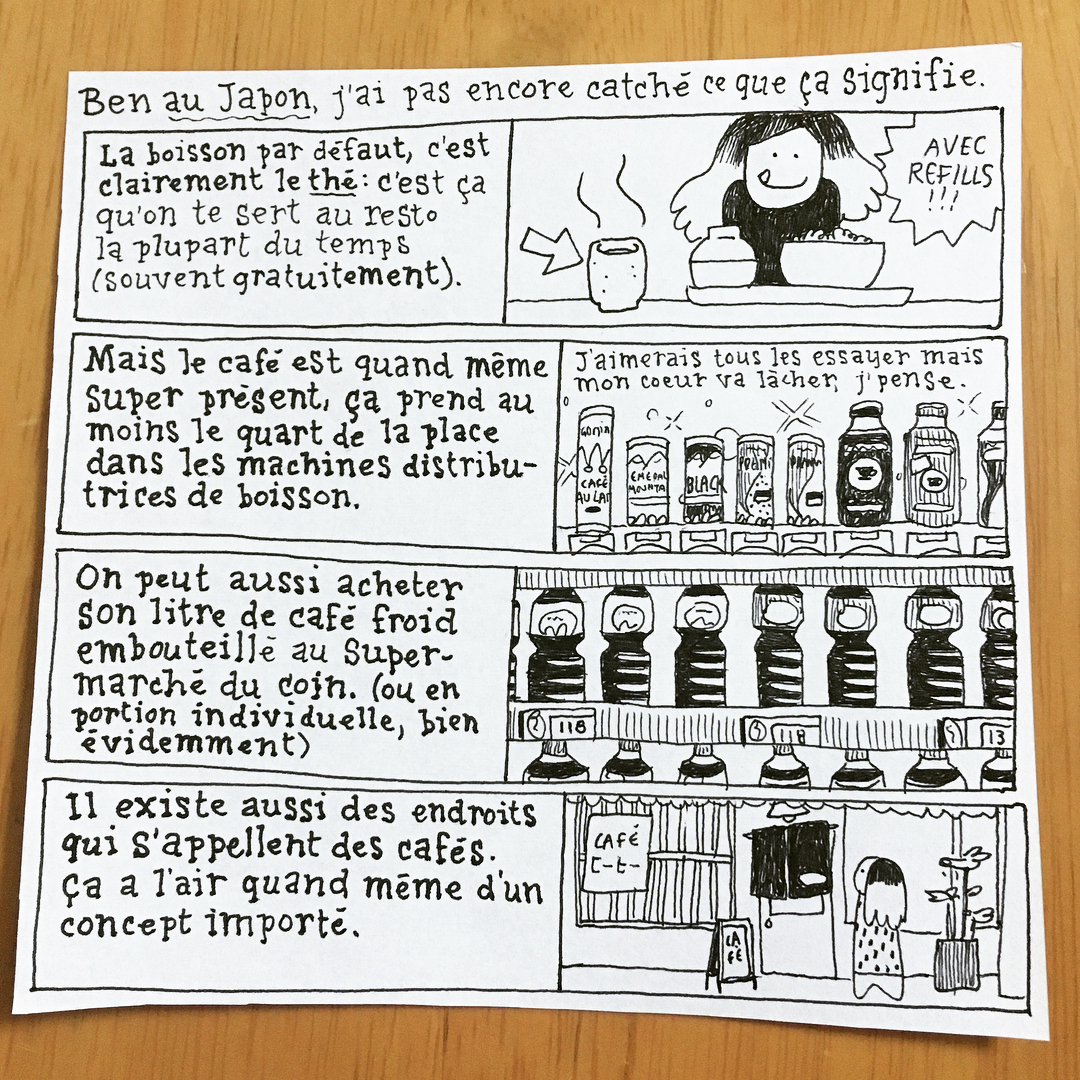 Ben au Japon, j'ai pas encore catché ce que ça signifie.
La boisson par défaut, c'est
clairement le thé: c'est ça
qu'on te sert au resto
la plupart du temps
(souvent gratuitement).
AVEC
REFILLS
!!!
Mais le café est quand même
super présent, ça prend au
moins le quart de la place
dans les machines distribu-
trices de boisson.
J'aimerais tous les essayer mais
mon coeur va lâcher, j'pense.
CAFÉ
AU LAIT
BLACK
On peut aussi acheter
son litre de café froid
embouteillé au super-
marché du coin. (ou en
portion individuelle, bien
évidemment)
118
118
13
Il existe aussi des endroits
qui s'appellent des cafés.
Ça a l'air quand même d'un
concept importé.
CAFÉ
CA
FÉ